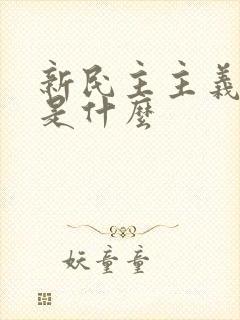 新民主主義
是什麼
妖童童